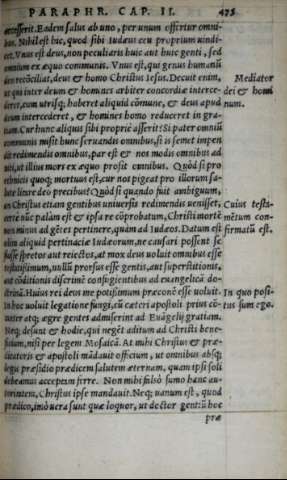 PARAPHR. CAP. II. 475
accesserit. Eadem salus ab uno, per unum offertur omni-
bus. Nihil est hic, quod sibi Iudæus ceu proprium uindi-
cet. Vnus est deus, non peculiaris huic aut huic genti, sed
omnium ex æquo communis. Vnus est, qui genus humanũ
deo recõciliat, deus & homo Christus Iesus. Decuit enim,
Mediator
ut qui inter deum & homines arbiter concordiæ interce-
dei & homi
deret, cum utrisq; haberet aliquid cõmune, & deus apud
num.
deum intercederet, & homines homo reduceret in gra-
tiam. Cur hunc aliquis sibi propriè asserit? Si pater omniũ
communis misit hunc seruandis omnibus, si is semet impen
dit redimendis omnibus, par est & nos modis omnibus ad
niti, ut illius mors ex æquo prosit omnibus. Quòd si pro
ethnicis quoq; mortuus est, cur nos pigeat pro illorum sa-
lute litare deo precibus? Quòd si quando fuit ambiguum,
an Christus etiam gentibus uniuersis redimendis uenisset,
Cuius testi-
certè nũc palàm est & ipsa re cõprobatum, Christi mortẽ
mẽtum con-
non minus ad gẽtes pertinere, quàm ad Iudæos. Datum est
firmatũ est.
olim aliquid pertinaciæ Iudæorum, ne causari possent se
fuisse spretos aut reiectos, at mox deus uoluit omnibus esse
testatissimum, nulli prorsus esse gentis, aut superstitionis,
aut cõditionis discrimẽ confugientibus ad euangelicã do-
ctrinã. Huius rei deus me potissimum præconẽ esse uoluit.
In quo posi-
In hoc uoluit legatione fungi, cũ cæteri apostoli prius cõ-
tus sum ego.
tanter atq; ægre gentes admiserint ad Euãgelij gratiam.
Neq; desunt & hodie, qui negẽt aditum ad Christi bene-
ficium, nisi per legem Mosaicã. At mihi Christus & præ-
dicatoris & apostoli mãdauit officium, ut omnibus absq;
legis præsidio prædicem salutem æternam, quam ipsi soli
debeamus acceptam ferre. Non mihi falsò sumo hanc au-
toritatem, Christus ipse mandauit. Neq; uanum est, quod
prædico, imò uera sunt quæ loquor, ut doctor gentiũ hoc
præ